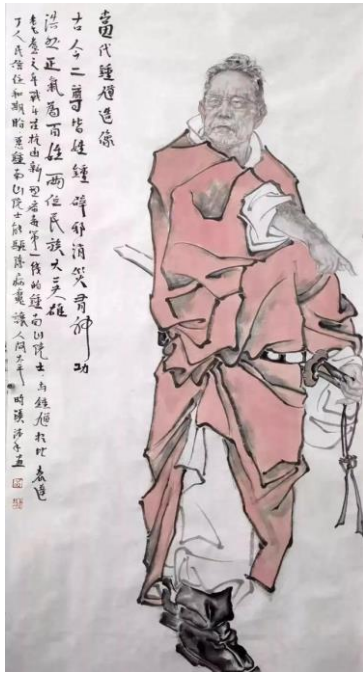 當代鍾馗造像
古今二尊皆姓鍾辟邪消災有神功
浩然正氣為百姓两位民族大英雄
耄耋之年战斗在抗击新型病毒第一线的鍾南山院士与鍾馗相比表達
了人民信任和期盼愿鍾南山院士能驅除病魔讓人间太平時